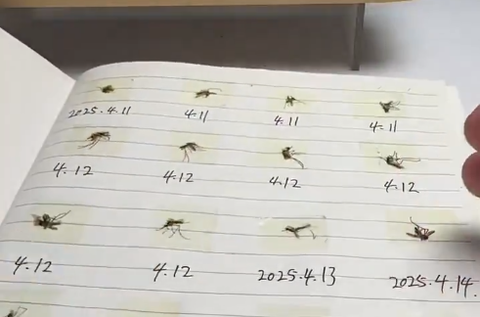 2025.4.11 4.11 4.11 4.11
4.12 4.12 4.12 4.12
4.12 4.12 2025.4.13 2025.4.14.